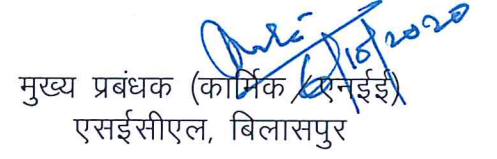 6/10/2020
मुख्य प्रबंधक (कार्मिक / एनईई)
एसईसीएल, बिलासपुर